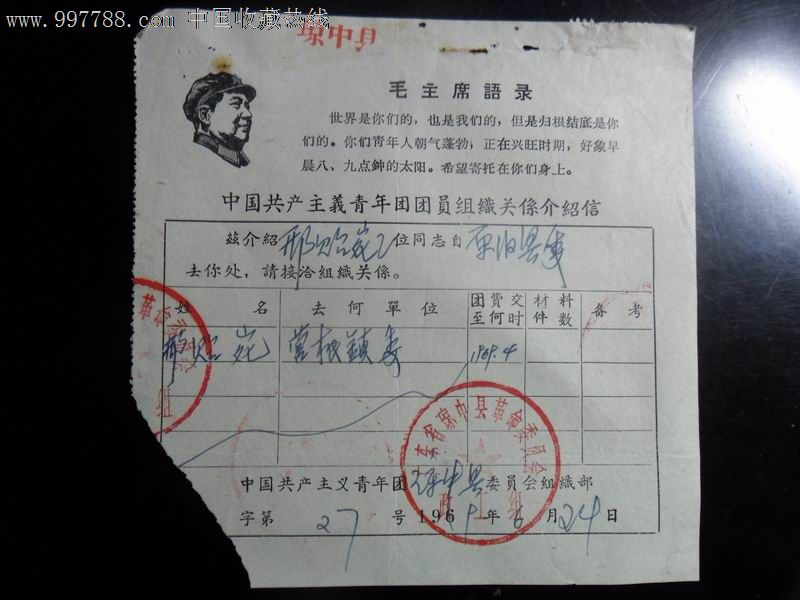 www.997788.com 中国收藏热线
琼中县
毛主席語录
世界是你们的，也是我们的，但是归根结底是你
们的。你们青年人朝气蓬勃，正在兴旺时期，好象早
晨八、九点鈡的太阳。希望寄托在你们身上。
中国共产主義青年团团员组織关係介紹信
茲介紹 位同志自
去你处，請接洽組織关係。
姓名 去何單位 团費交至何时 材料件数 备考
鎮委 1969.4
东省琼中县革命委员会
中国共产主义青年团 县委員会組織部
字第 27 号 1969年6月24日